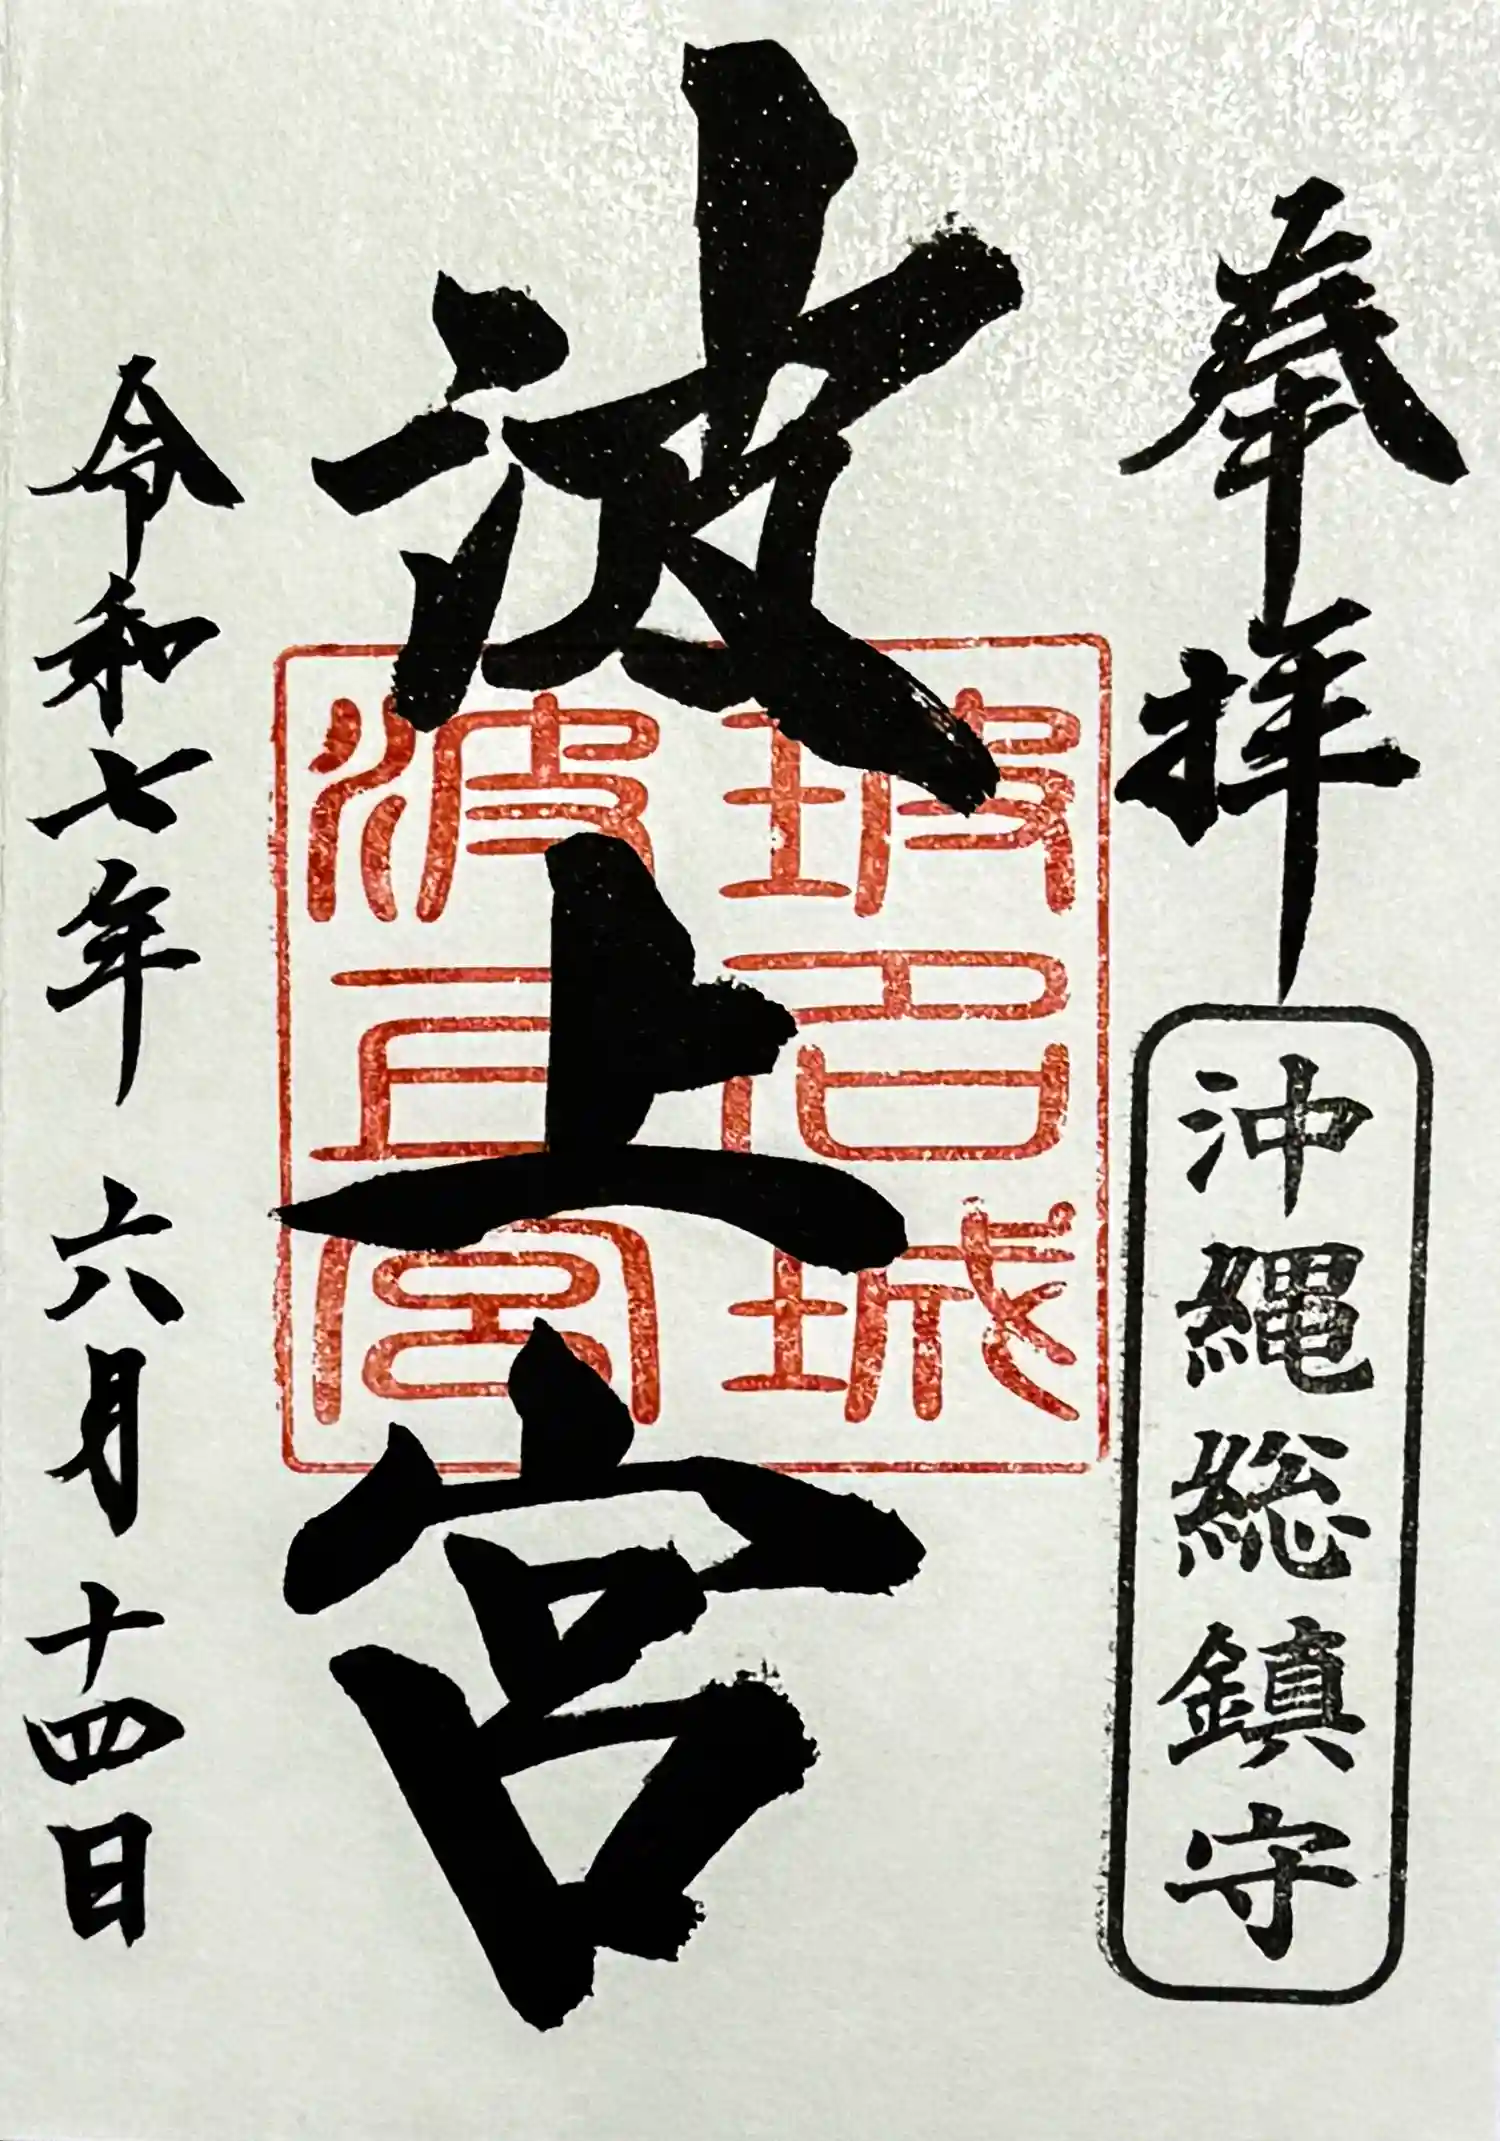 奉拝
沖縄総鎮守
波上宮
玻名城
波上宮
令和七年六月十四日